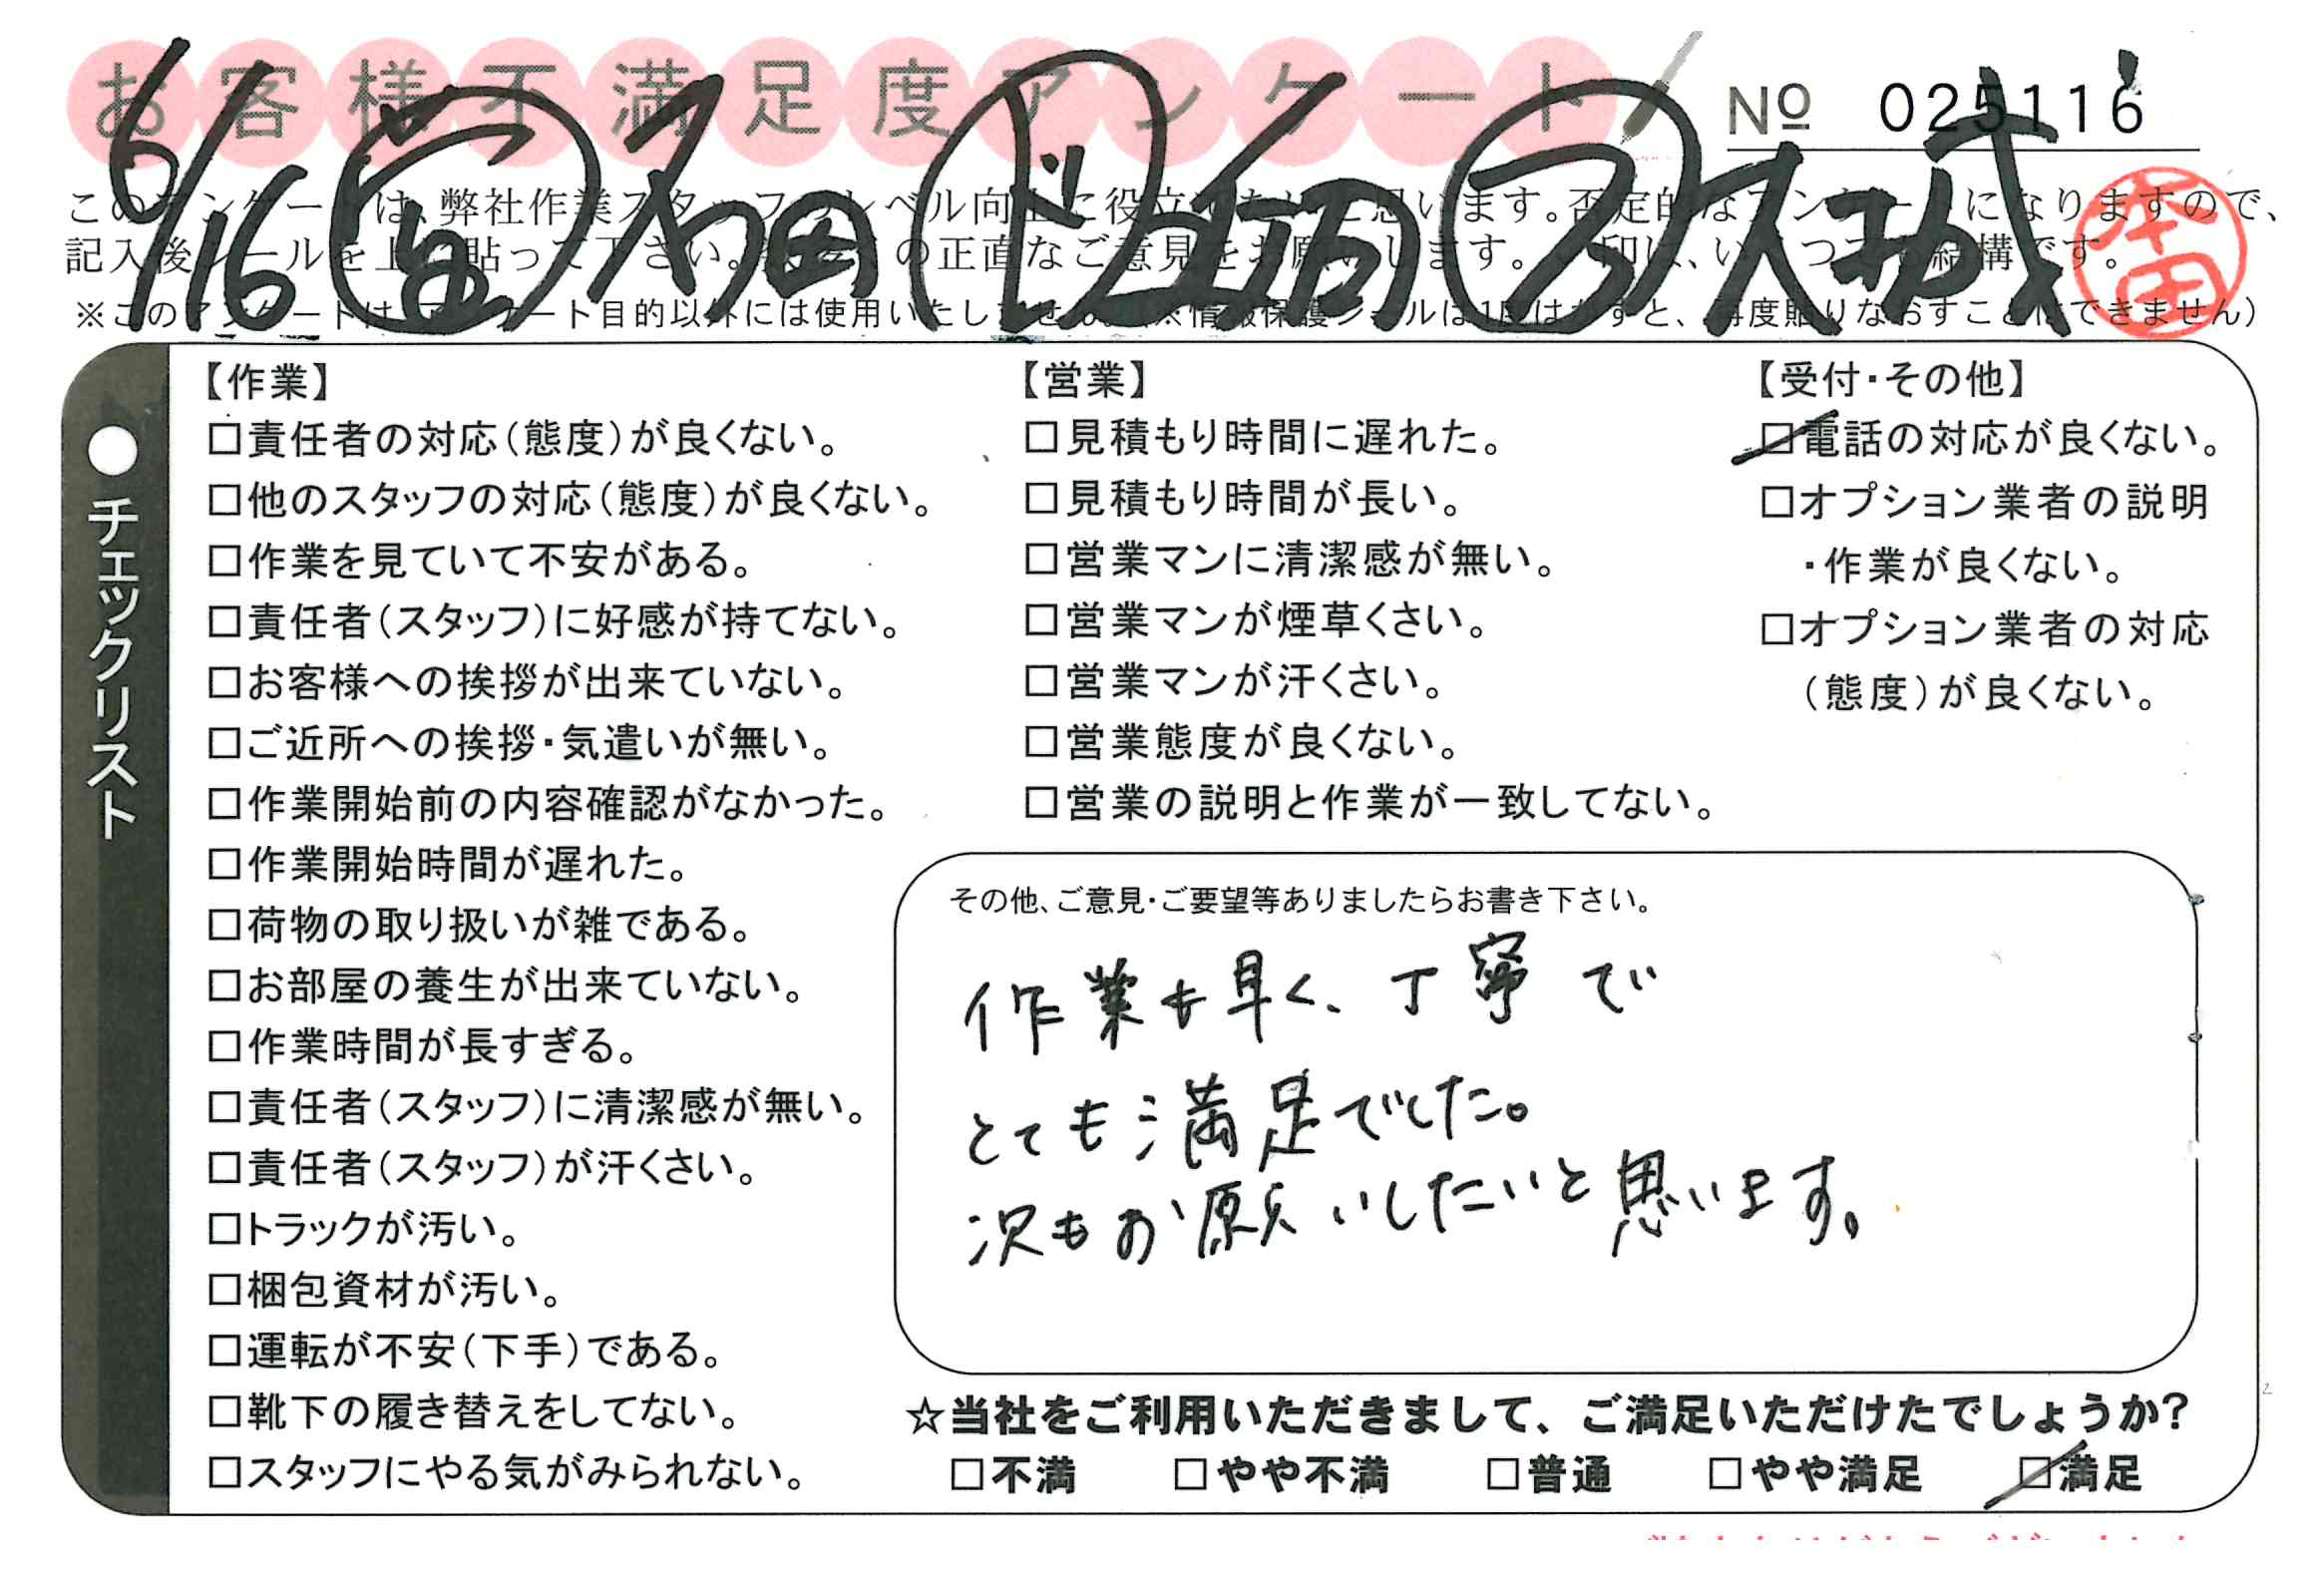 お客様不満足度アンケート
№ 025116
6/16 営 石田 ド 山田 ア 大城
本田
このアンケートは、弊社作業スタッフのレベル向上に役立てたいと思います。否定的なアンケートになりますので、
記入後シールを上に貼って下さい。お客様の正直なご意見をお願いします。○印は、いくつでも結構です。
※このアンケートは、アンケート目的以外には使用いたしません。(※情報保護シールは1度はがすと、再度貼りなおすことはできません)
●チェックリスト
【作業】
□責任者の対応(態度)が良くない。
□他のスタッフの対応(態度)が良くない。
□作業を見ていて不安がある。
□責任者(スタッフ)に好感が持てない。
□お客様への挨拶が出来ていない。
□ご近所への挨拶・気遣いが無い。
□作業開始前の内容確認がなかった。
□作業開始時間が遅れた。
□荷物の取り扱いが雑である。
□お部屋の養生が出来ていない。
□作業時間が長すぎる。
□責任者(スタッフ)に清潔感が無い。
□責任者(スタッフ)が汗くさい。
□トラックが汚い。
□梱包資材が汚い。
□運転が不安(下手)である。
□靴下の履き替えをしてない。
□スタッフにやる気がみられない。
【営業】
□見積もり時間に遅れた。
□見積もり時間が長い。
□営業マンに清潔感が無い。
□営業マンが煙草くさい。
□営業マンが汗くさい。
□営業態度が良くない。
□営業の説明と作業が一致してない。
【受付・その他】
□電話の対応が良くない。
□オプション業者の説明
・作業が良くない。
□オプション業者の対応
(態度)が良くない。
その他、ご意見・ご要望等ありましたらお書き下さい。
作業も早く、丁寧で
とても満足でした。
次もお願いしたいと思います。
☆当社をご利用いただきまして、ご満足いただけたでしょうか?
□不満 □やや不満 □普通 □やや満足 □満足